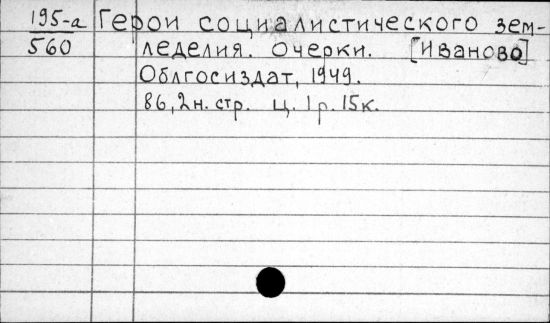 195-а Герои социалистического зем-
560 леделия. Очерки. [Иваново]
Облгосиздат, 1949.
86,2н. стр. ц. 1р. 15к.